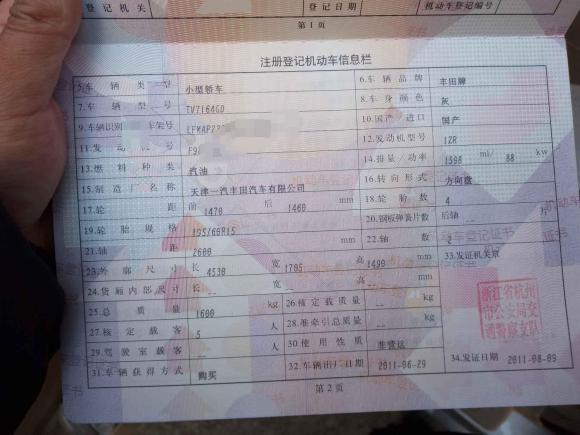 登记机关 登记日期 机动车登记编号
第1页
注册登记机动车信息栏
5.车辆类型 小型轿车 6.车辆品牌 丰田牌
7.车辆型号 TV7164GD 8.车身颜色 灰
9.车辆识别 车架号 LFMAP22 10.国产/进口 国产
11.发动机号 F9 12.发动机型号 1ZR
13.燃料种类 汽油 14.排量/功率 1598 ml/ 88 kw
15.制造厂名称 天津一汽丰田汽车有限公司 16.转向形式 方向盘
17.轮距 前 1470 后 1460 mm 18.轮胎数 4
19.轮胎规格 195/60R15 20.钢板弹簧片数 后轴 -- 片
21.轴距 2600 mm 22.轴数 2
23.外廓尺寸 长 4530 宽 1705 高 1490 mm 33.发证机关章
24.货厢内部尺寸 长 -- 宽 -- 高 -- mm
浙江省杭州
市公安局交
通警察支队
25.总质量 1600 kg 26.核定载质量 -- kg
27.核定载客 5 人 28.准牵引总质量 -- kg
29.驾驶室载客 -- 人 30.使用性质 非营运
31.车辆获得方式 购买 32.车辆出厂日期 2011-06-29 34.发证日期 2011-08-09
第2页